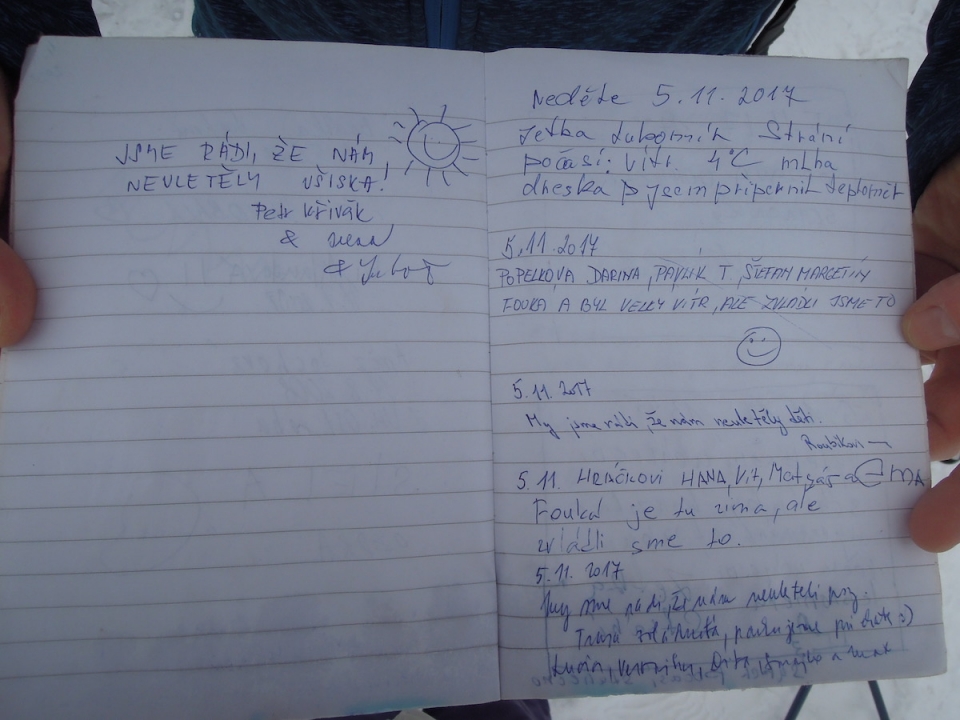 JSME RÁDI, ŽE NÁM
NEULETĚLY UŠISKA!
Petr Křivák
&
&
Neděle 5.11.2017
Strání
počasí: vítr 4°C mlha
dneska jsem připevnil teploměr
5.11.2017
POPELKOVA DARINA, PAVLÍK T, ŠTEFAN MARGETÍN
FOUKA A BYL VELKY VÍTR, ALE ZVLÁDLI JSME TO
5.11.2017
My jsme rádi, že nám neuletěly děti.
5.11. HRÁČKOVI HANA, Vít, Matyáš a Ema
Fouká je tu zima, ale
zvládli sme to.
5.11.2017
My sme radi, že nám neuleteli psy.